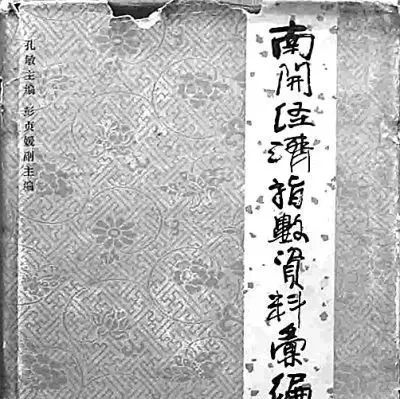 南開经濟指數資料彙編
孔敏主编 彭贞媛副主编